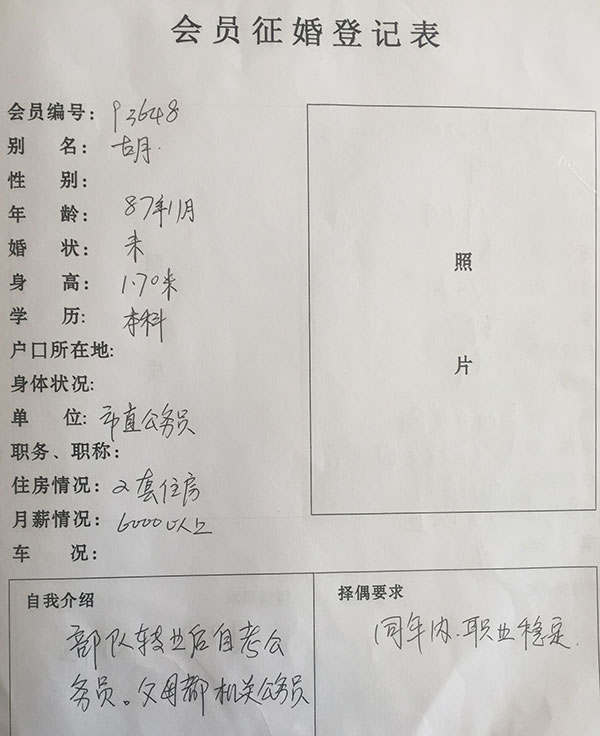 会员征婚登记表
会员编号: P3648
别 名: 胡
性 别:
年 龄: 87年11月
婚 状: 未
身 高: 1.70米
学 历: 本科
户口所在地:
身体状况:
单 位: 市直公务员
职务、职称:
住房情况: 2套住房
月薪情况: 6000以上
车 况:
照
片
自我介绍
部队转业后自考公
务员。父母都机关公务员
择偶要求
同年内、职业稳定.